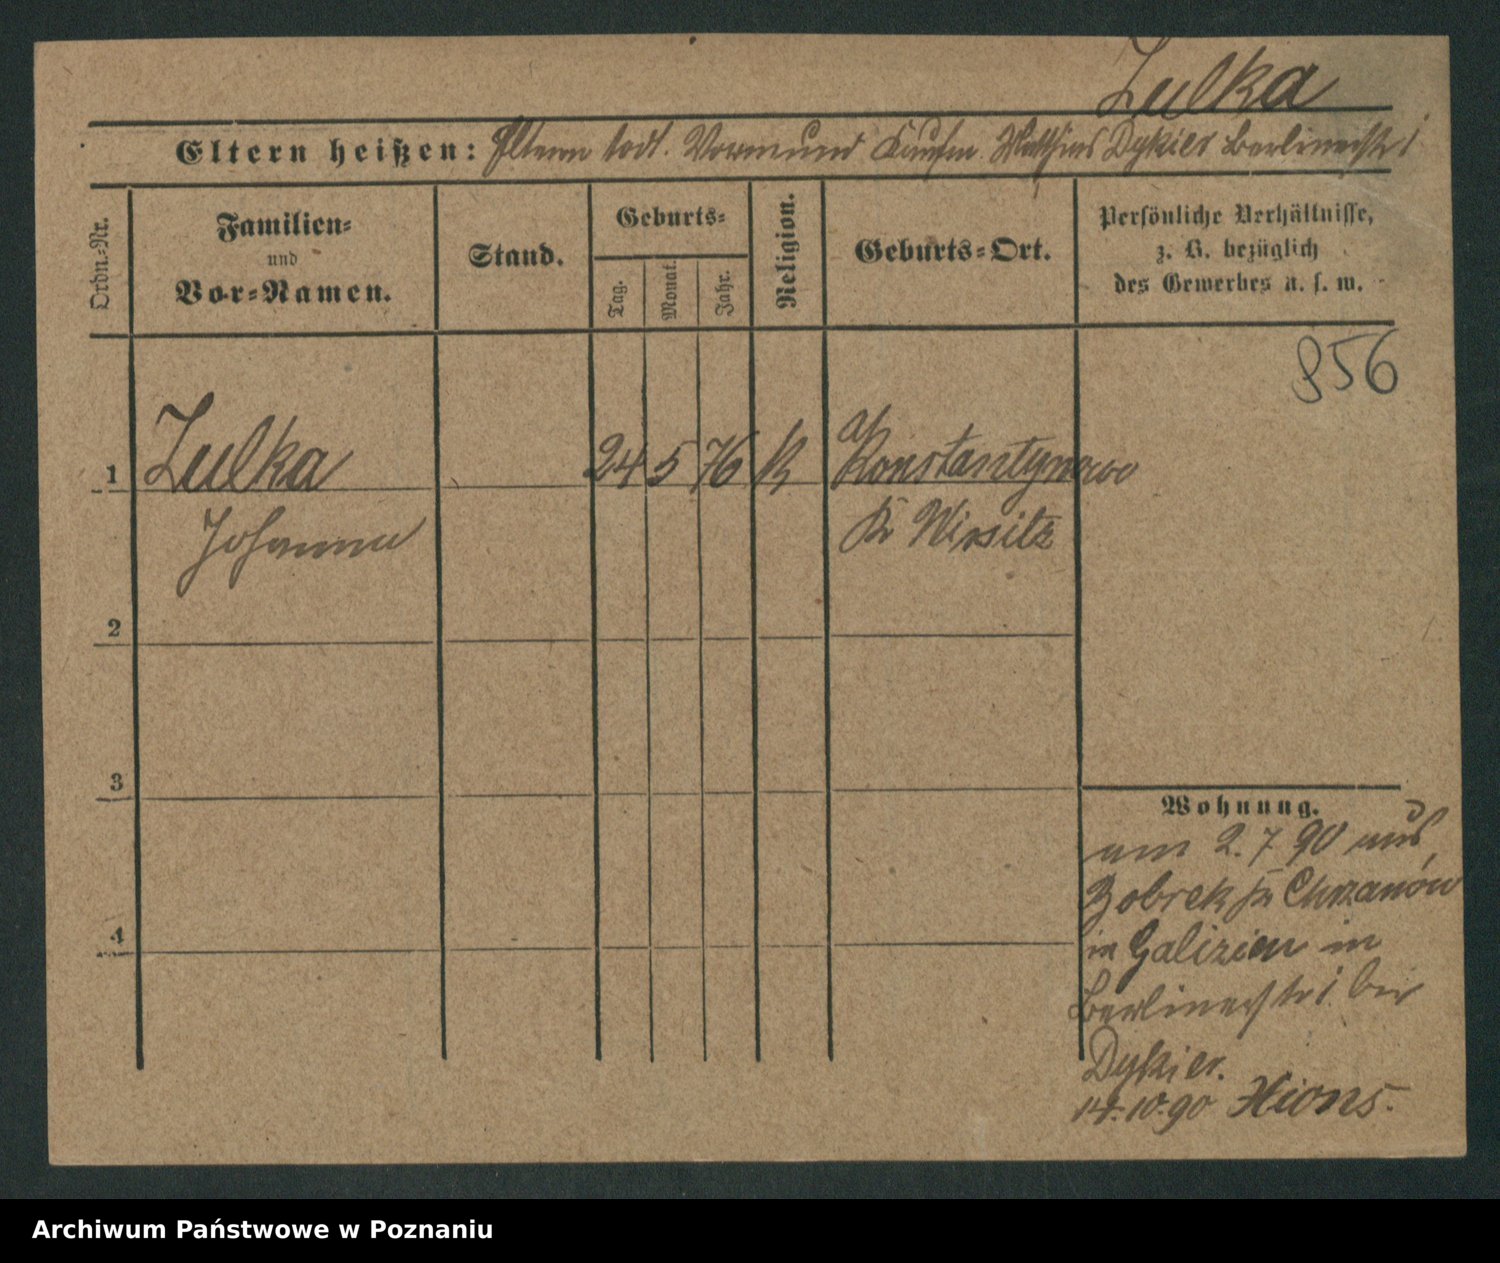 Zulka
Eltern heißen: Eltern todt. Vormund Kaufm. Matthias Dykier Berlinerstr 1
Ordn.-Nr.
Familien-
und
Vor-Namen.
Stand.
Geburts-
Tag.
Monat.
Jahr.
Religion.
Geburts-Ort.
Persönliche Verhältnisse,
z. B. bezüglich
des Gewerbes u. s. w.
856
1 Zulka 24 5 76 K Konstantynowo
Johanna Kr Wirsitz
2
3
4
Wohnung.
am 2. 7 90 aus
Bobrek Kr Chrzanów
in Galizien in
Berlinerstr 1. bei
Dykier.
14.10.90 Xions.
Archiwum Państwowe w Poznaniu